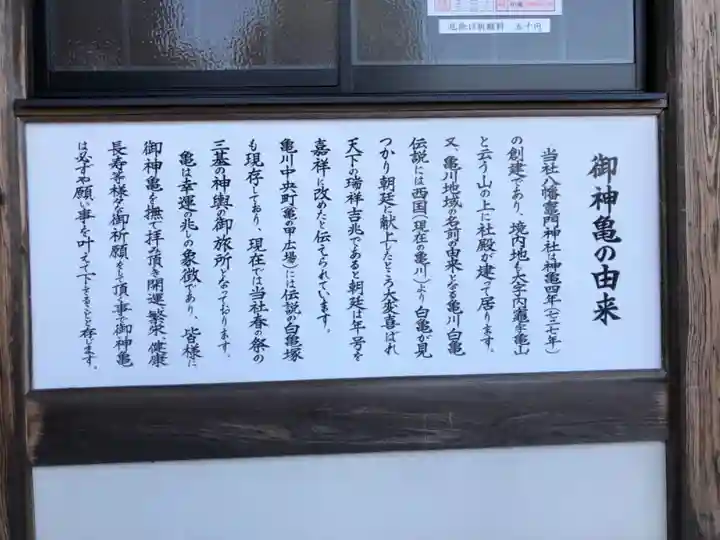 厄除け祈願料　五十円
御神亀の由来
当社八幡竈門神社は神亀四年(七二七年)
の創建であり、境内地も大字内竈字亀山
と云う山の上に社殿が建って居ります。
又、亀川地域の名前の由来となる亀川白亀
伝説には西国(現在の亀川)より白亀が見
つかり朝廷に献上したところ大変喜ばれ
天下の瑞祥吉兆であると朝廷は年号を
嘉祥に改めたと伝えられています。
亀川中央町(亀の甲広場)には伝説の白亀塚
も現存しており、現在では当社春の祭の
三基の神輿の御旅所となっております。
亀は幸運の兆しの象徴であり、皆様に
御神亀を撫で拝み頂き開運、繁栄、健康
長寿等様々な御祈願をして頂く事で御神亀
は必ずや願い事を叶えて下さることと存じます。